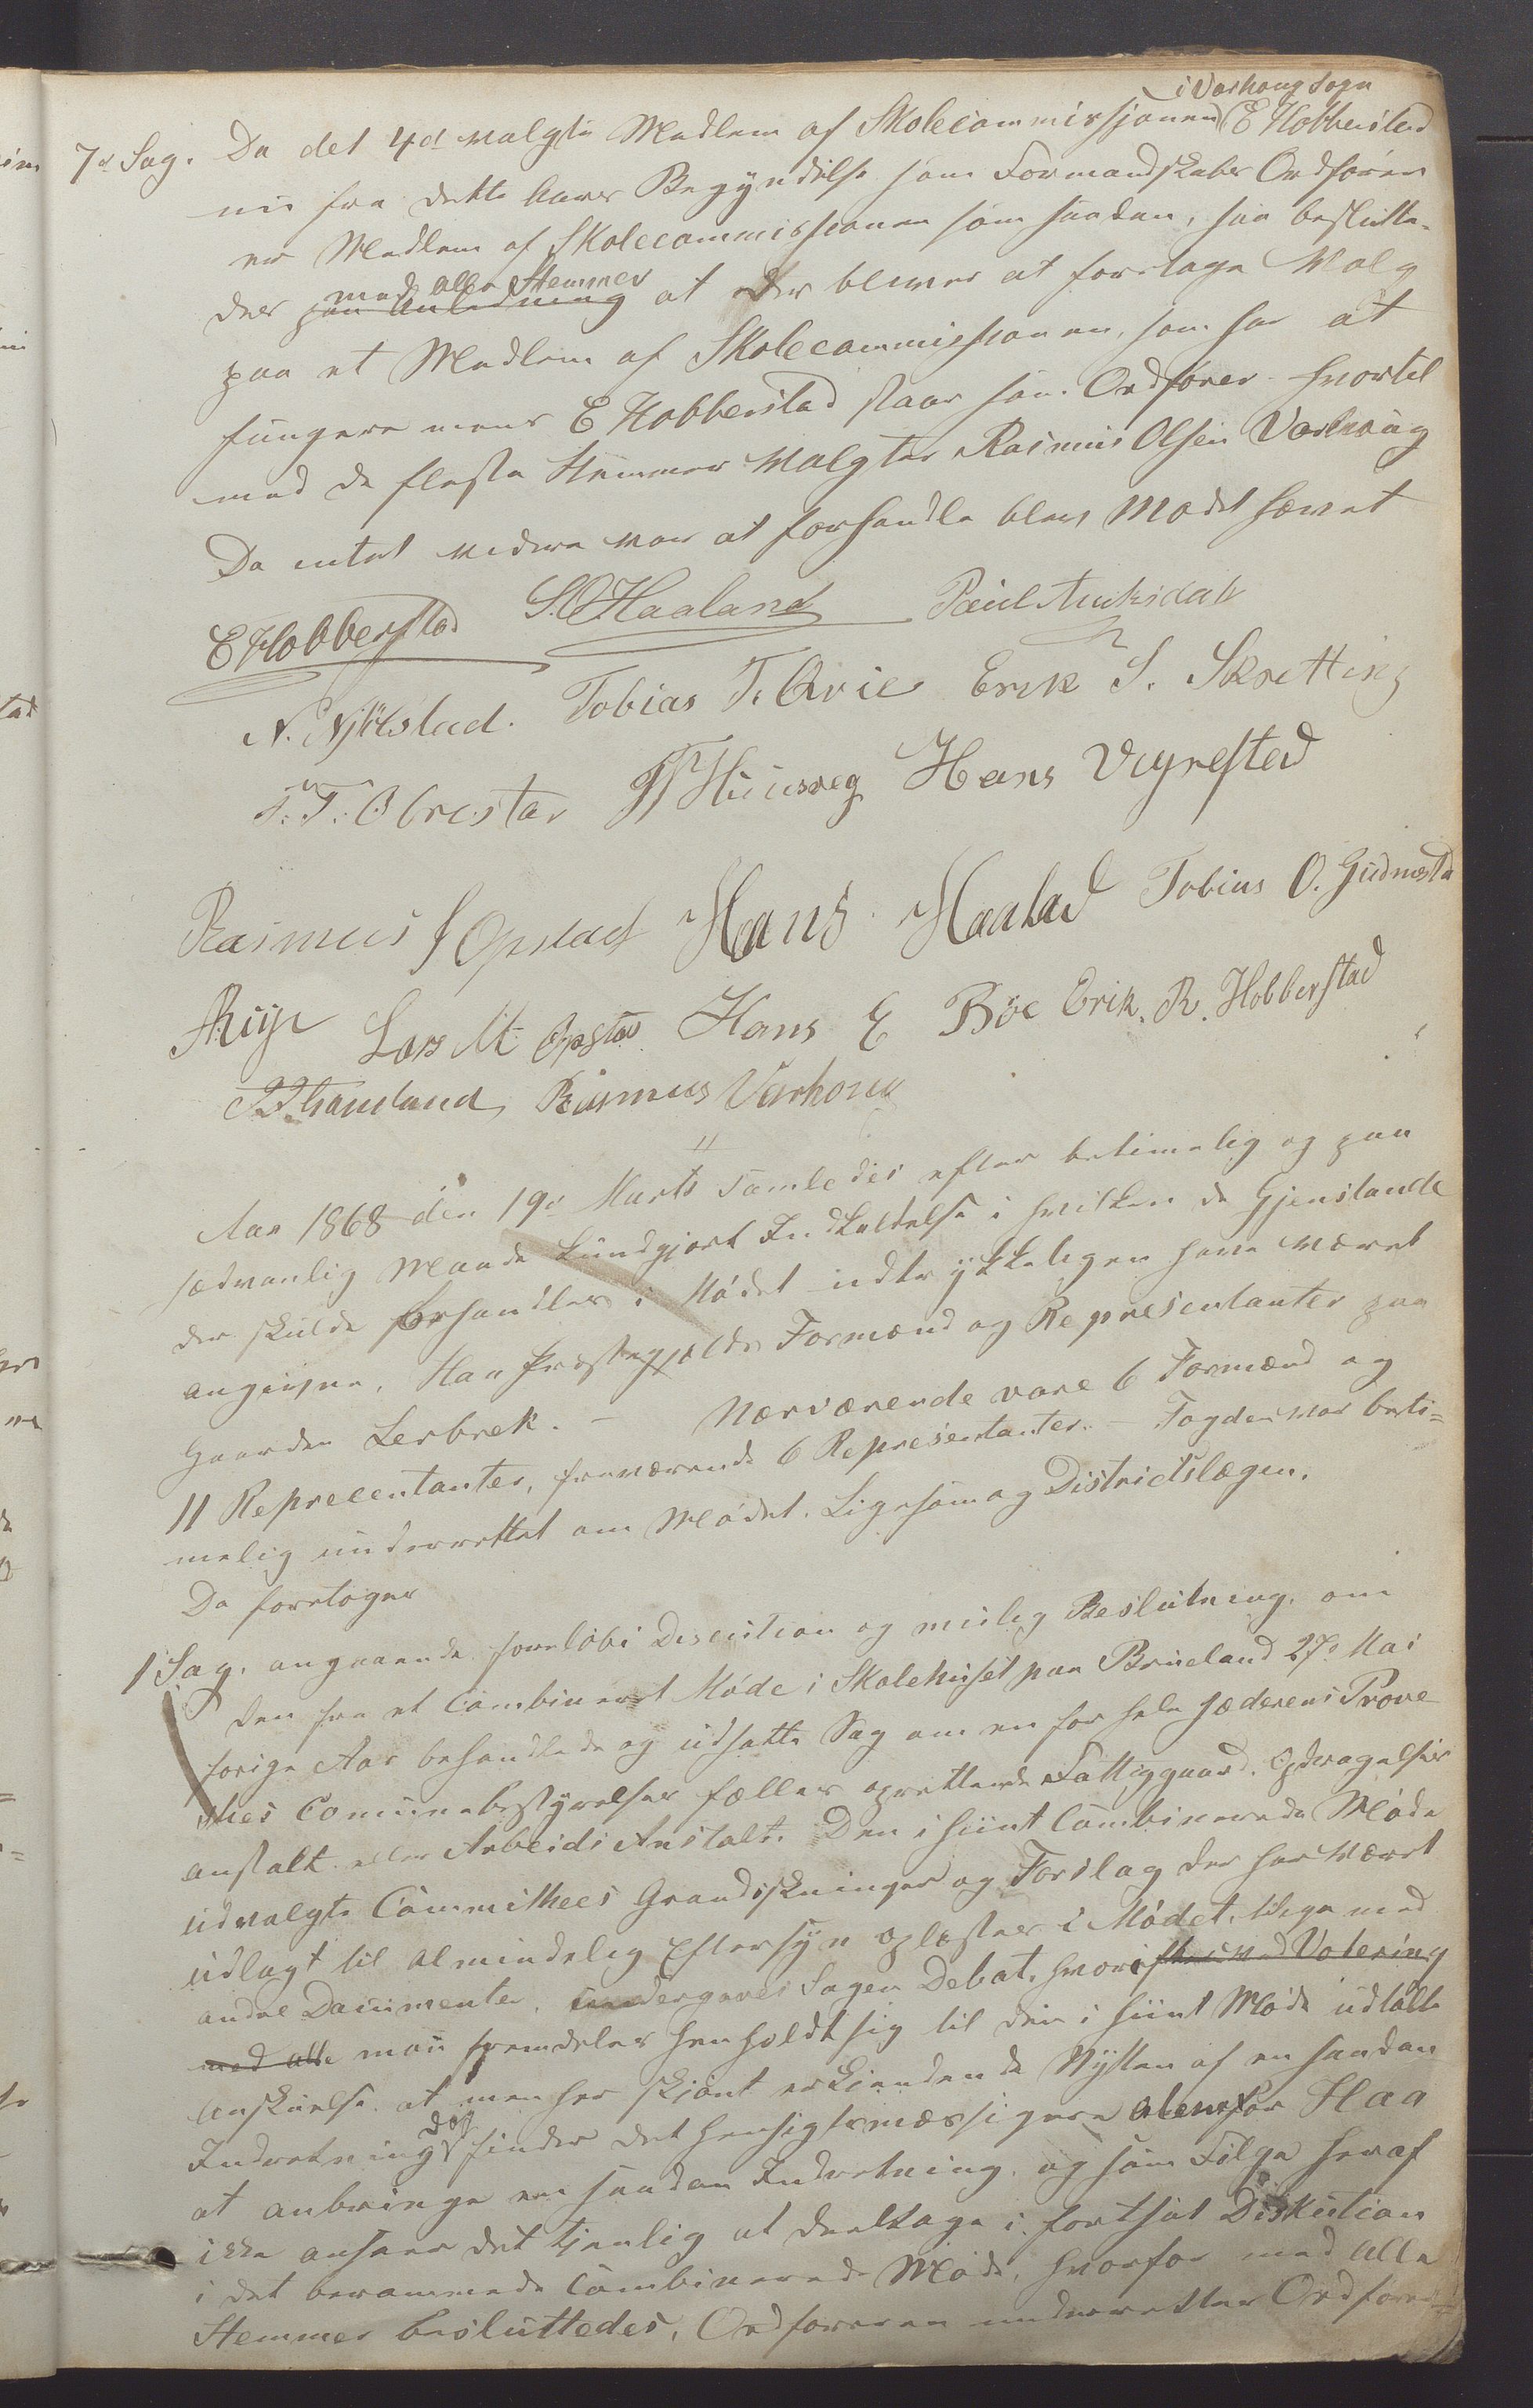 i Varhoug Sogn
7d Sag. Da det 4d valgte Medlem af Skolecommissjonen E Hobberstad
nu fra dette Aars Begyndelse som Formandskabs Ordfører
er Medlem af Skolecommissionen som saadan, saa beslutte-
med alle Stemmer
des paa Anledning at der bliver at foretage Valg
paa et Medlem af Skolecommissionen, som har at
fungere mens E Hobberstad staar som Ordfører hvortil
med de fleste Stemmer valgtes Rasmus Olsen Varhoug
Da intet videre var at forhandle blev Mødet hævet
E Hobberstad S. O Haaland Paul
N. Njølstad. Tobias T. Qvie Erik S. Skretting
T. T. Obrestad Hans Vigrestad
Rasmus Opstad Hans Haaland Tobias O. Gudmestd
Lars M Opstad Hans E Böe Erik. R. Hobberstad
Rasmus Varhoug
"
Aar 1868 den 19d Marts samledes efter betimelig og paa
sædvanlig Maade kundgjort Indkaldelse i hvilken de Gjenstande
der skulde forhandles i Mødet udtrykkeligen have været
angivne, Haa Præstegjelds Formænd og Representanter paa
Gaarden Lerbrek. – Nærværende vare 6 Formænd og
11 Reprecentanter, fraværende 6 Representanter. – Fogden var beti=
melig underrettet om Mødet. Ligesom og Districtslægen.
Da foretoges
1 Sag. angaaende foreløbi Discution og mulig Beslutning, om
den fra et Combineret Møde i Skolehuset paa Brueland 27d Mai
forige Aar behandlede og udsatte Sag om en for hele Jæderens Prove-
sties Comunebestyrelser fælles oprettende Fattiggaard. Opdragelses
anstalt eller Arbeids Anstalt. Den i hiint Combinerede Møde
udvalgte Committees Grandskninger og Forslag der har været
udlagt til almindelig Eftersyn oplæstes i Mødet tilligemed
andre Documenter, undergaves Sagen Debat, hvorefter ved Votering
med alle man fremdeles henholdt sig til den i hiint Møde udtalte
Anskuelse at man her skjønt erkjendende Nytten af en saadan
dog
Indretning finder det hensigtsmæssigere alene for Haa
at anbringe en saadan Indretning, og som Følge heraf
ikke ansaae det tjenlig at deeltage i fortsat Diskution
i det berammede Combinerede Møde, hvorfor med alle
Stemmer besluttedes, Ordføreren underretter Ordføre=